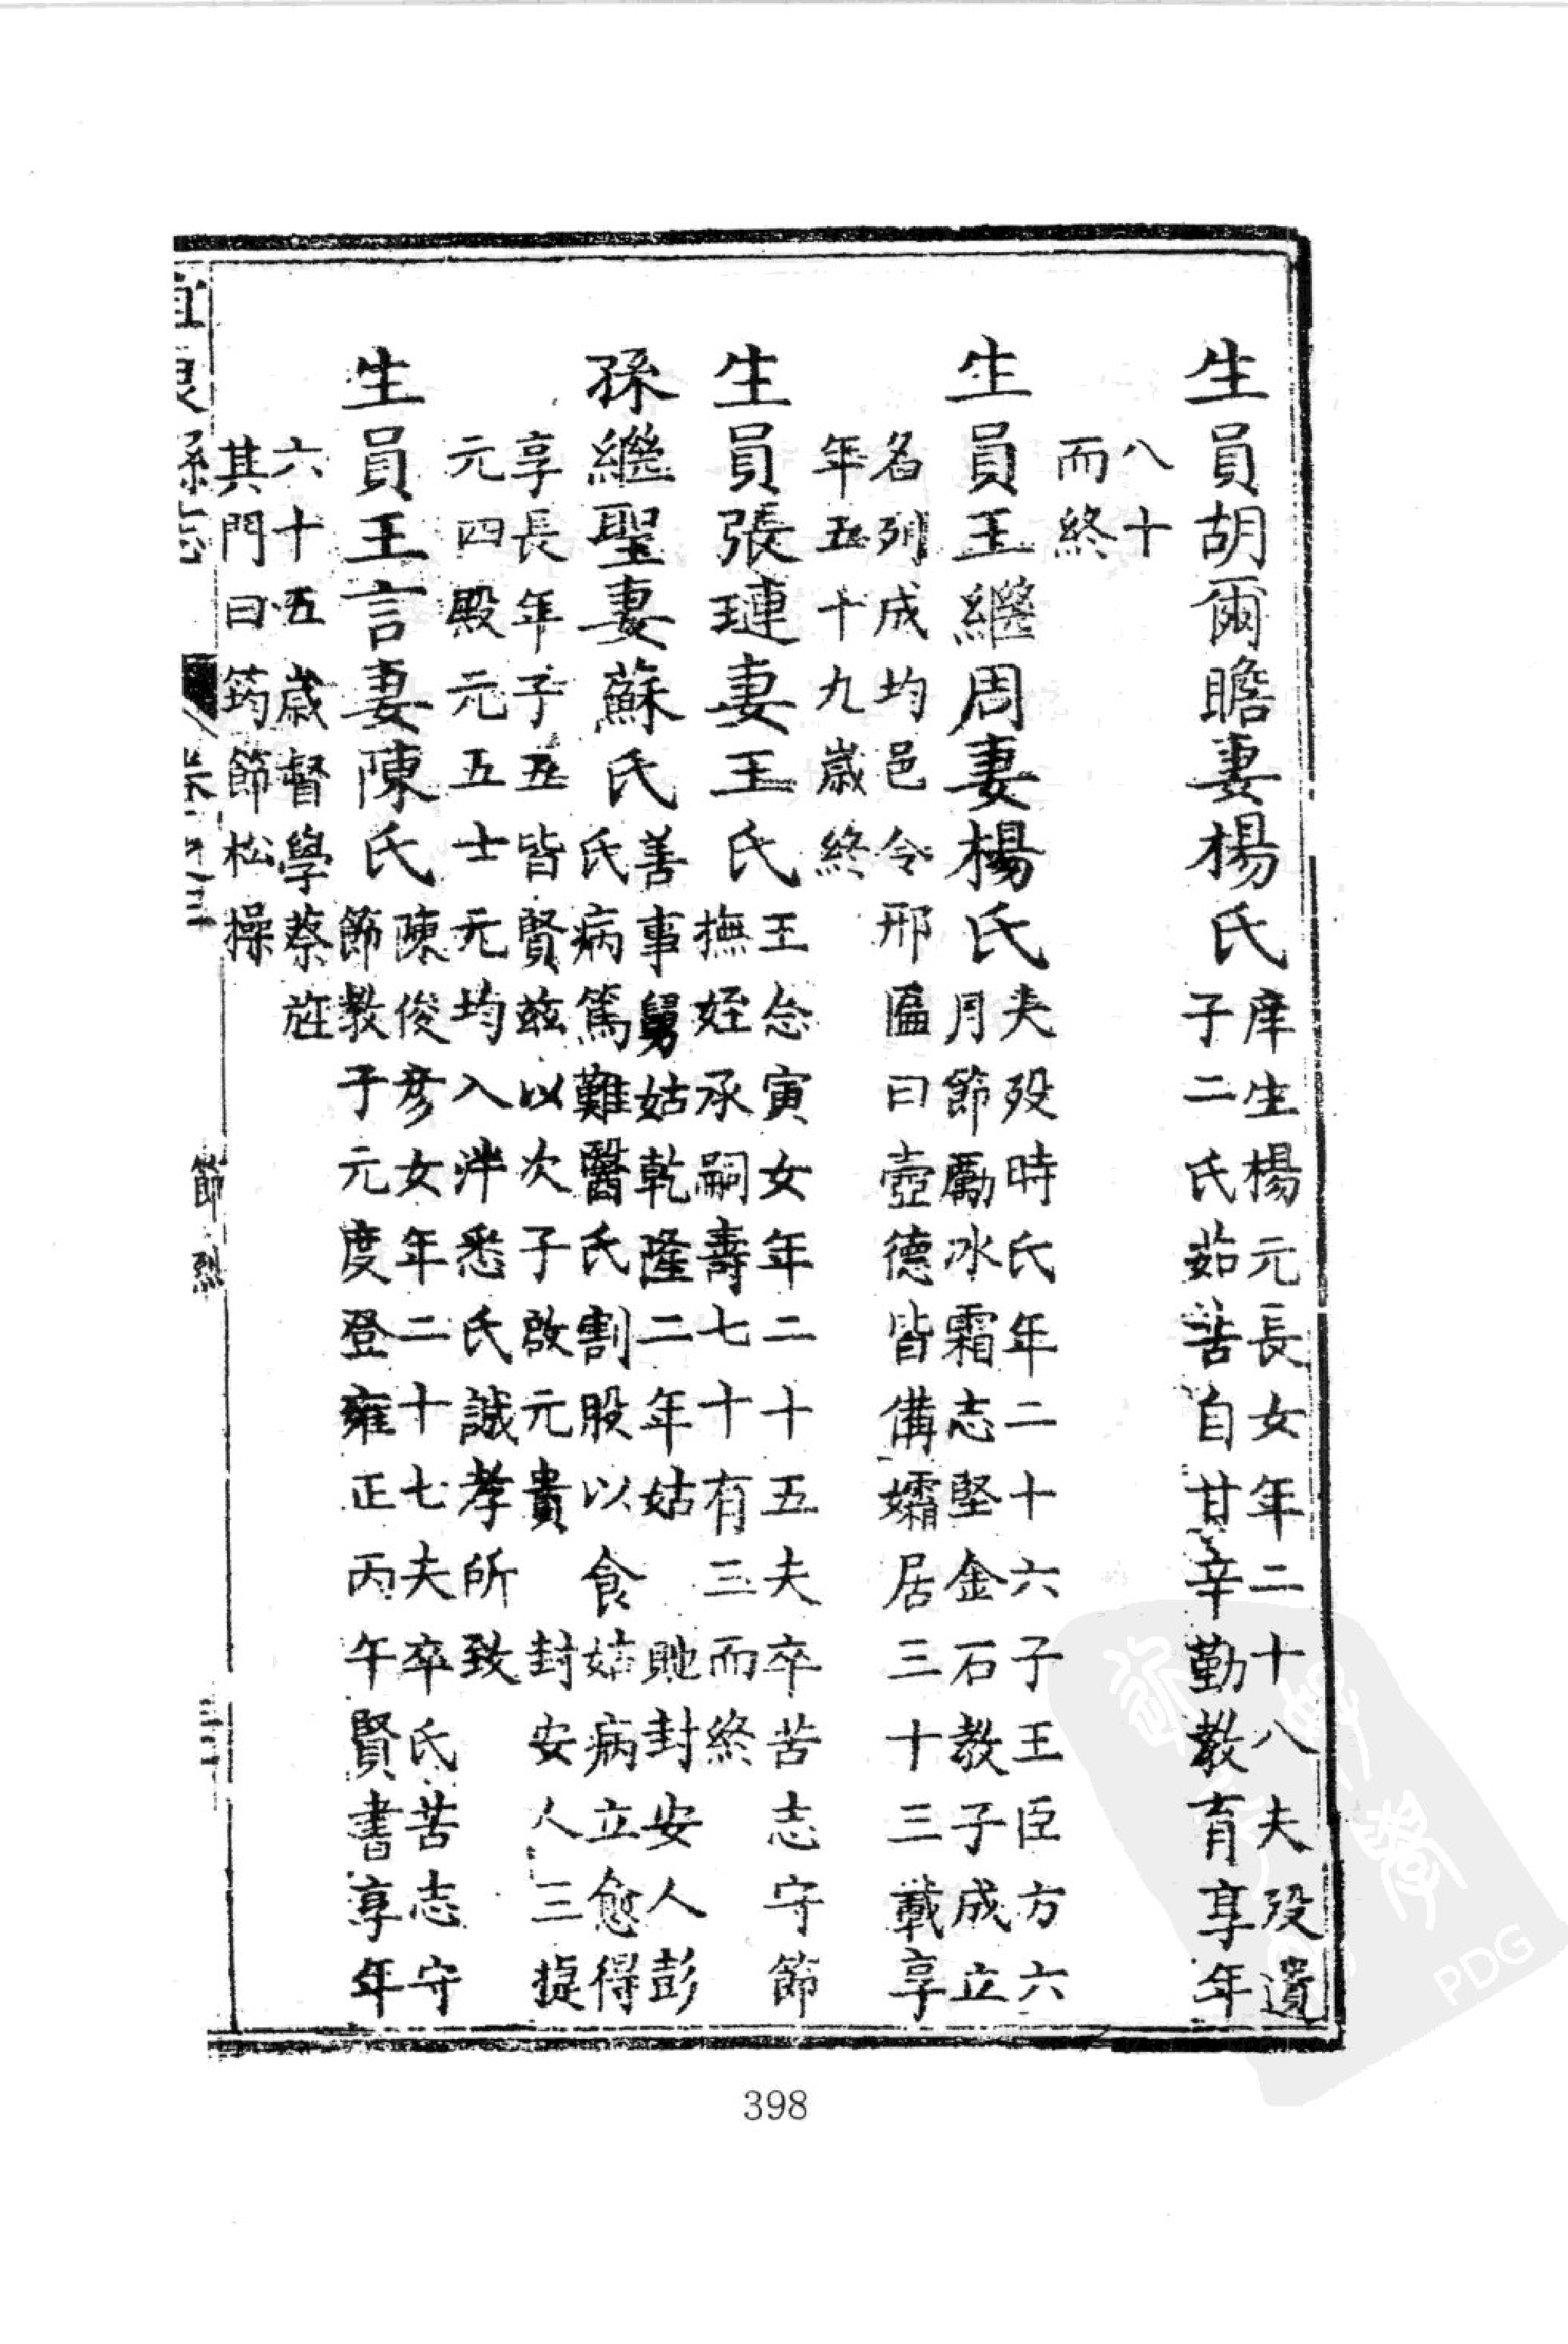 生員胡爾瞻妻楊氏
庠生楊元長女年二十八夫歿遺
子二氏茹苦自甘辛勤教育享年
八十
而終
生員王繼周妻楊氏
夫歿時氏年二十六子王臣方六
月節勵冰霜志堅金石教子成立
名列成均邑令邢匾曰壼德皆備孀居三十三載享
年五十九歲終
生員張璉妻王氏
王念寅女年二十五夫卒苦志守節
撫姪承嗣壽七十有三而終
孫繼聖妻蘇氏
善事舅姑乾隆二年姑 貤封安人彭
氏病篤難醫氏割股以食姑病立愈得
享長年子五皆賢茲以次子啟元貴 封安人三捷
元四殿元元五士元均入泮悉氏誠孝所致
生員王言妻陳氏
陳俊彥女年二十七夫卒氏苦志守
節教子元度登雍正丙午賢書享年
六十五歲督學蔡旌
其門曰筠節松操
宜良縣志
卷之三
節烈
398
PDG